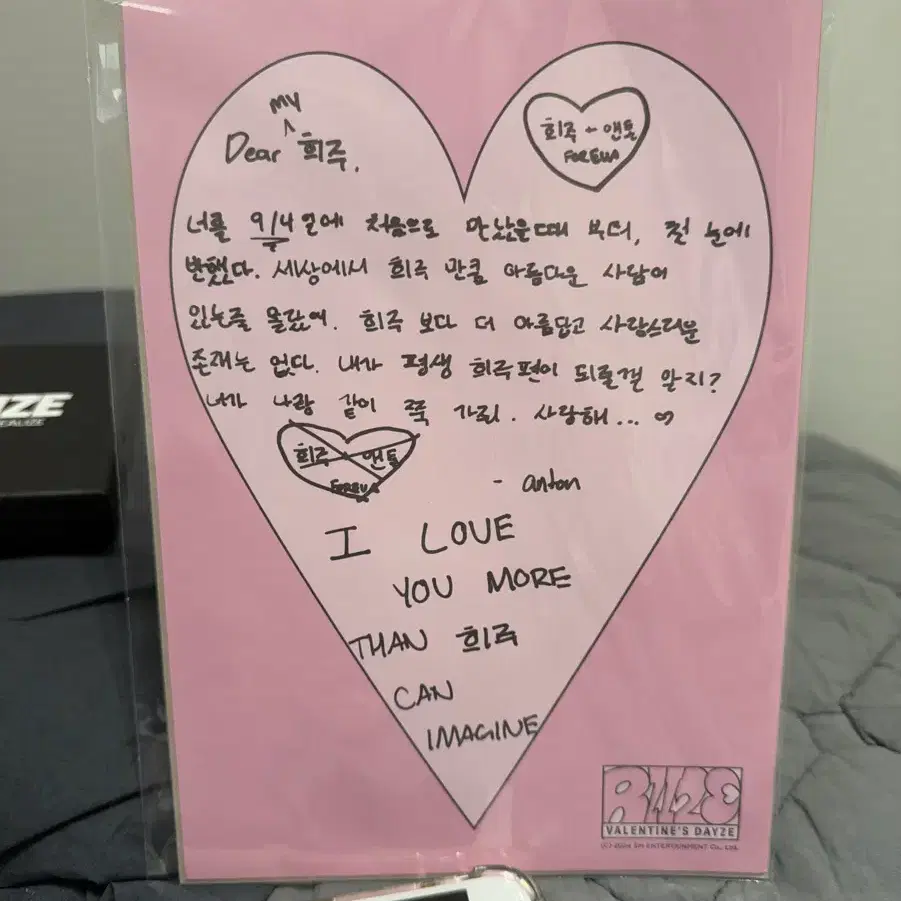 my
Dear 희주.
희주 - 앤톤
FOREVA
너를 9/4일에 처음으로 만났을때 부터, 첫 눈에
반했다. 세상에서 희주 만큼 아름다운 사람이
있는줄 몰랐어. 희주 보다 더 아름답고 사랑스러운
존재는 없다. 내가 평생 희주편이 되줄껄 알지?
너가 나랑 같이 쭉 가리. 사랑해...
희주 앤톤
- anton
I LOVE
YOU MORE
THAN 희주
CAN
IMAGINE
ZE
EALIZE
RIIZE
VALENTINE'S DAYZE
(C) 2024 SM ENTERTAINMENT Co., Ltd.